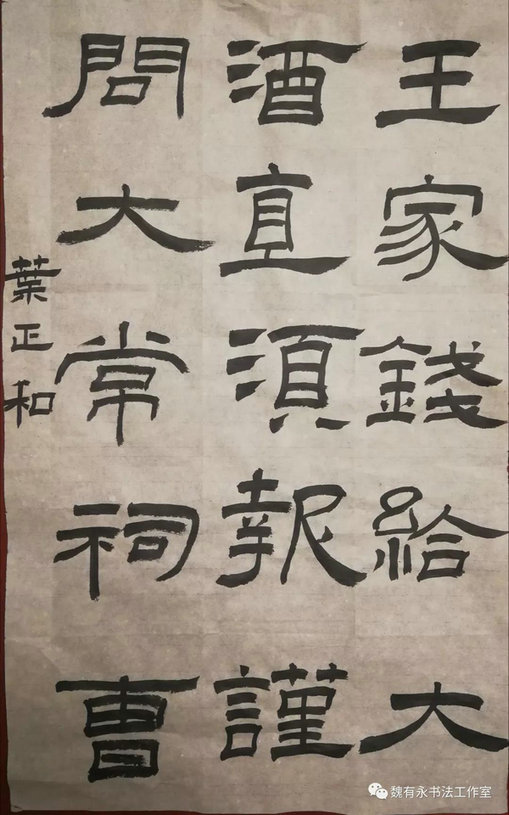 王家錢給大
酒直須報謹
問大常祠曹
葉正和
魏有永书法工作室